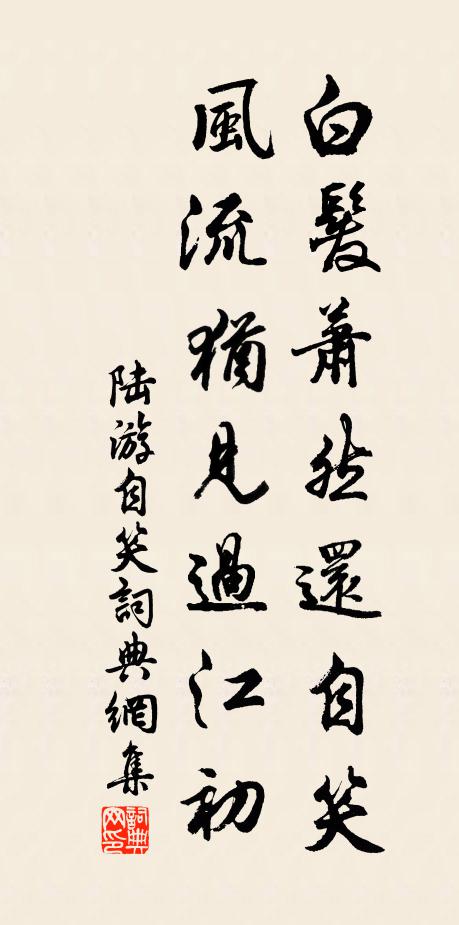 白髮蕭然還自笑
風流猶見過江初
陸游自笑詞典網集
詞典
网印